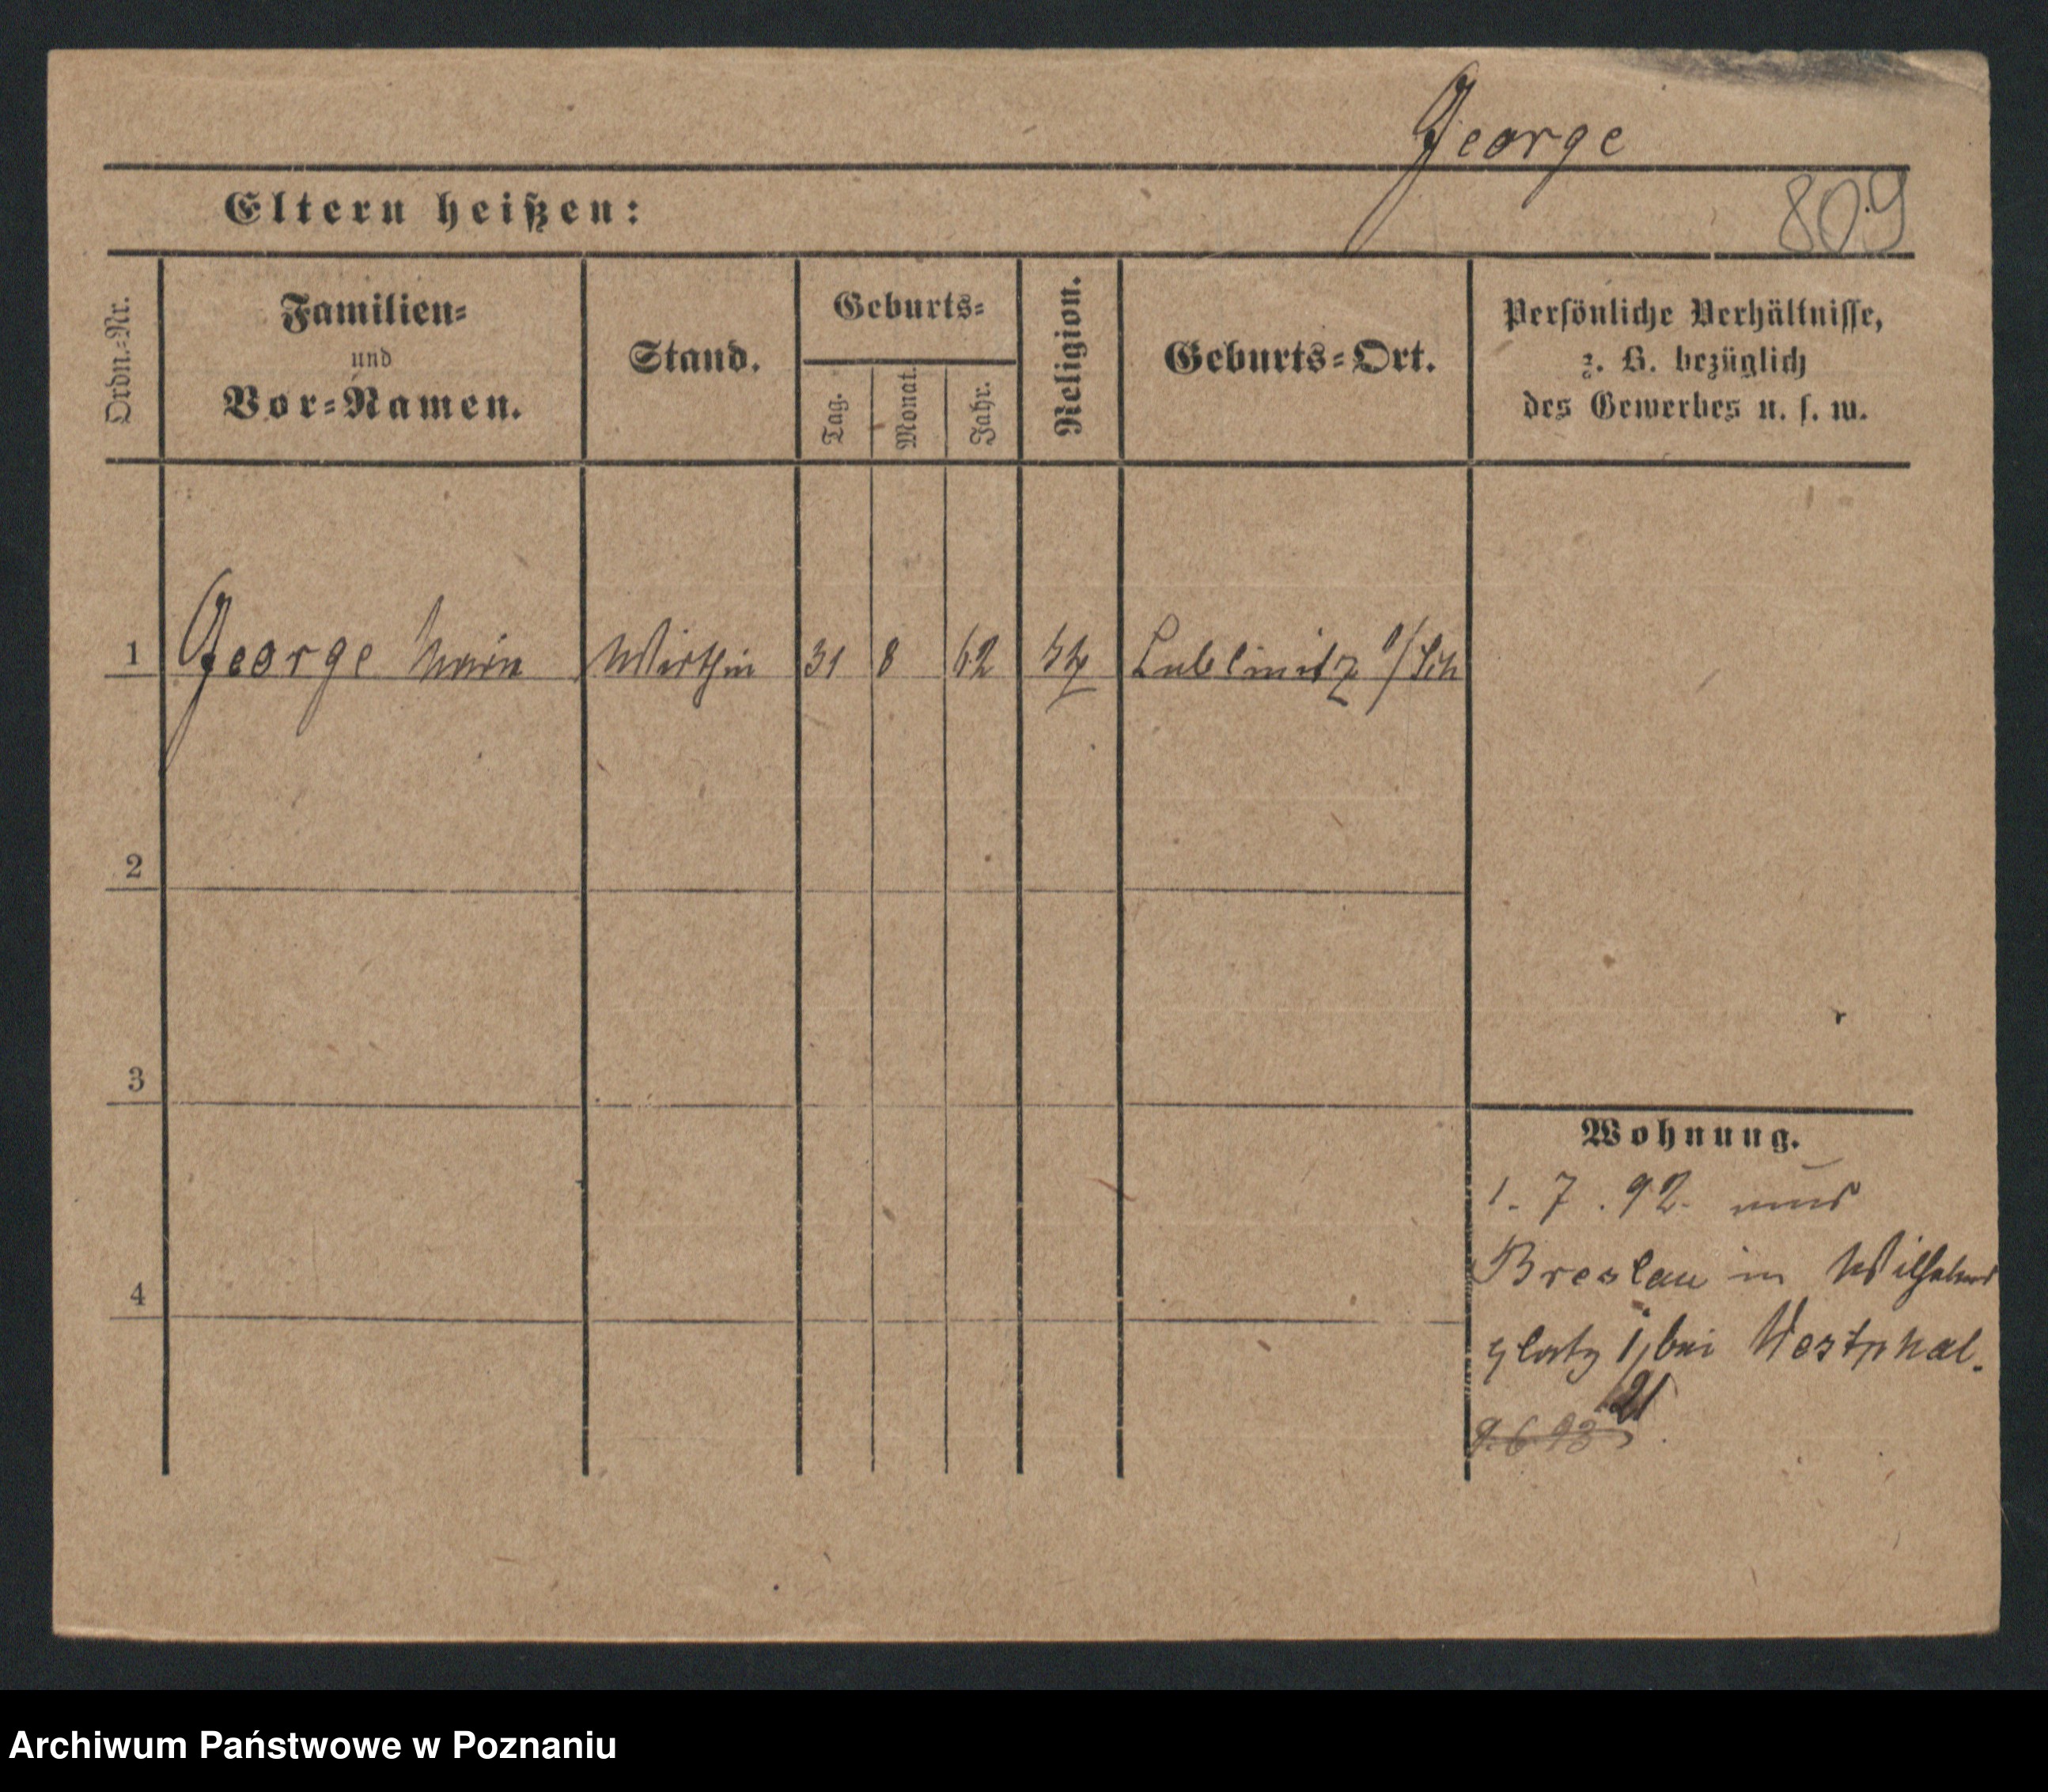 George
809
Eltern heißen:
Ordn.-Nr.
Familien-
und
Vor-Namen.
Stand.
Geburts-
Tag.
Monat.
Jahr.
Religion.
Geburts-Ort.
Persönliche Verhältnisse,
z. B. bezüglich
des Gewerbes u. s. w.
1 George Wirthin 31 8 62 Lublinitz O/Sch
2
3
4
Wohnung.
1. 7. 92. aus
Breslau in Wilhelms
platz bei Westphal.
21
9. 6 93
Archiwum Państwowe w Poznaniu